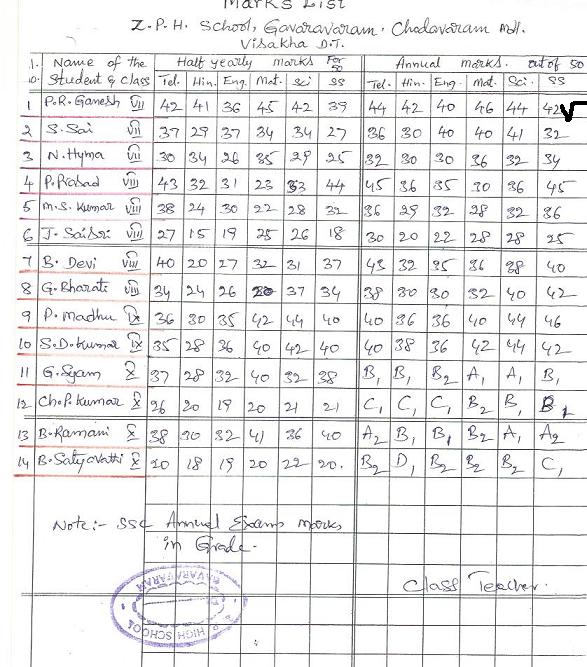 Marks List
Z.P.H. School, Gavaravaram, Chodavaram Mdl.
Visakha D.T.
Name of the Student & Class Half yearly marks For 50 Annual marks. out of 50
Tel. Hin. Eng. Mat. Sci SS Tel. Hin. Eng. Mat. Sci. SS
1 P.R. Ganesh VII 42 41 36 45 42 39 44 42 40 46 44 42
2 S. Sai VII 37 29 37 34 34 27 36 30 40 40 41 32
3 N. Hyma VII 30 34 26 35 29 25 32 30 30 36 32 34
4 P. Prasad VIII 43 32 31 23 33 44 45 36 35 30 36 45
5 M.S. Kumar VIII 38 24 30 22 28 32 36 29 32 28 32 36
6 J. SaiSri VIII 27 15 19 25 26 18 30 20 22 28 28 25
7 B. Devi VIII 40 20 27 32 31 37 43 32 35 36 38 40
8 G. Bharati VIII 34 24 26 20 37 34 38 30 30 32 40 42
9 P. Madhu IX 36 30 35 42 44 40 40 36 36 40 44 46
10 S.D. Kumar IX 35 28 36 40 42 40 40 38 36 42 44 42
11 G. Syam X 37 28 32 40 32 38 B1 B1 B2 A1 A1 B1
12 Ch.P. Kumar X 26 20 19 20 21 21 C1 C1 C1 B2 B1 B1
13 B. Ramani X 38 30 32 41 36 40 A2 B1 B1 B2 A1 A2
14 B. Satyavathi X 20 18 19 20 22 20. B2 D1 B2 B2 B2 C1
Note:- SSC Annual Exams marks
in Grade.
Class Teacher.
GAVARAVARAM
HIGH SCHOOL